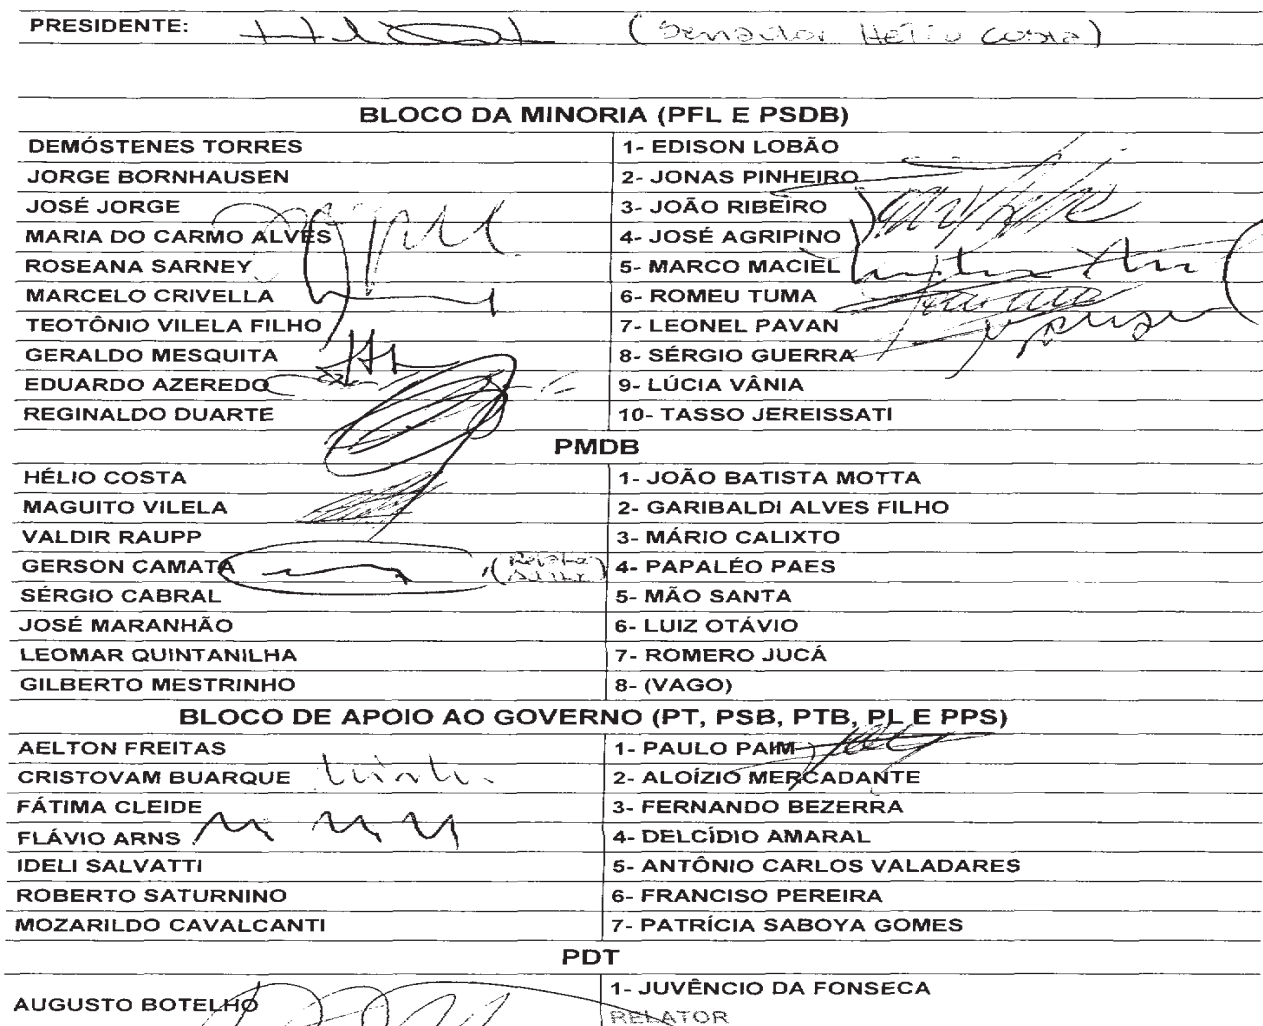 PRESIDENTE: (Senador Hélio Costa)
BLOCO DA MINORIA (PFL E PSDB)
DEMÓSTENES TORRES 1- EDISON LOBÃO
JORGE BORNHAUSEN 2- JONAS PINHEIRO
JOSÉ JORGE 3- JOÃO RIBEIRO
MARIA DO CARMO ALVES 4- JOSÉ AGRIPINO
ROSEANA SARNEY 5- MARCO MACIEL
MARCELO CRIVELLA 6- ROMEU TUMA
TEOTÔNIO VILELA FILHO 7- LEONEL PAVAN
GERALDO MESQUITA 8- SÉRGIO GUERRA
EDUARDO AZEREDO 9- LÚCIA VÂNIA
REGINALDO DUARTE 10- TASSO JEREISSATI
PMDB
HÉLIO COSTA 1- JOÃO BATISTA MOTTA
MAGUITO VILELA 2- GARIBALDI ALVES FILHO
VALDIR RAUPP 3- MÁRIO CALIXTO
GERSON CAMATA 4- PAPALÉO PAES
SÉRGIO CABRAL 5- MÃO SANTA
JOSÉ MARANHÃO 6- LUIZ OTÁVIO
LEOMAR QUINTANILHA 7- ROMERO JUCÁ
GILBERTO MESTRINHO 8- (VAGO)
BLOCO DE APOIO AO GOVERNO (PT, PSB, PTB, PL E PPS)
AELTON FREITAS 1- PAULO PAIM
CRISTOVAM BUARQUE 2- ALOÍZIO MERCADANTE
FÁTIMA CLEIDE 3- FERNANDO BEZERRA
FLÁVIO ARNS 4- DELCÍDIO AMARAL
IDELI SALVATTI 5- ANTÔNIO CARLOS VALADARES
ROBERTO SATURNINO 6- FRANCISO PEREIRA
MOZARILDO CAVALCANTI 7- PATRÍCIA SABOYA GOMES
PDT
AUGUSTO BOTELHO 1- JUVÊNCIO DA FONSECA
RELATOR